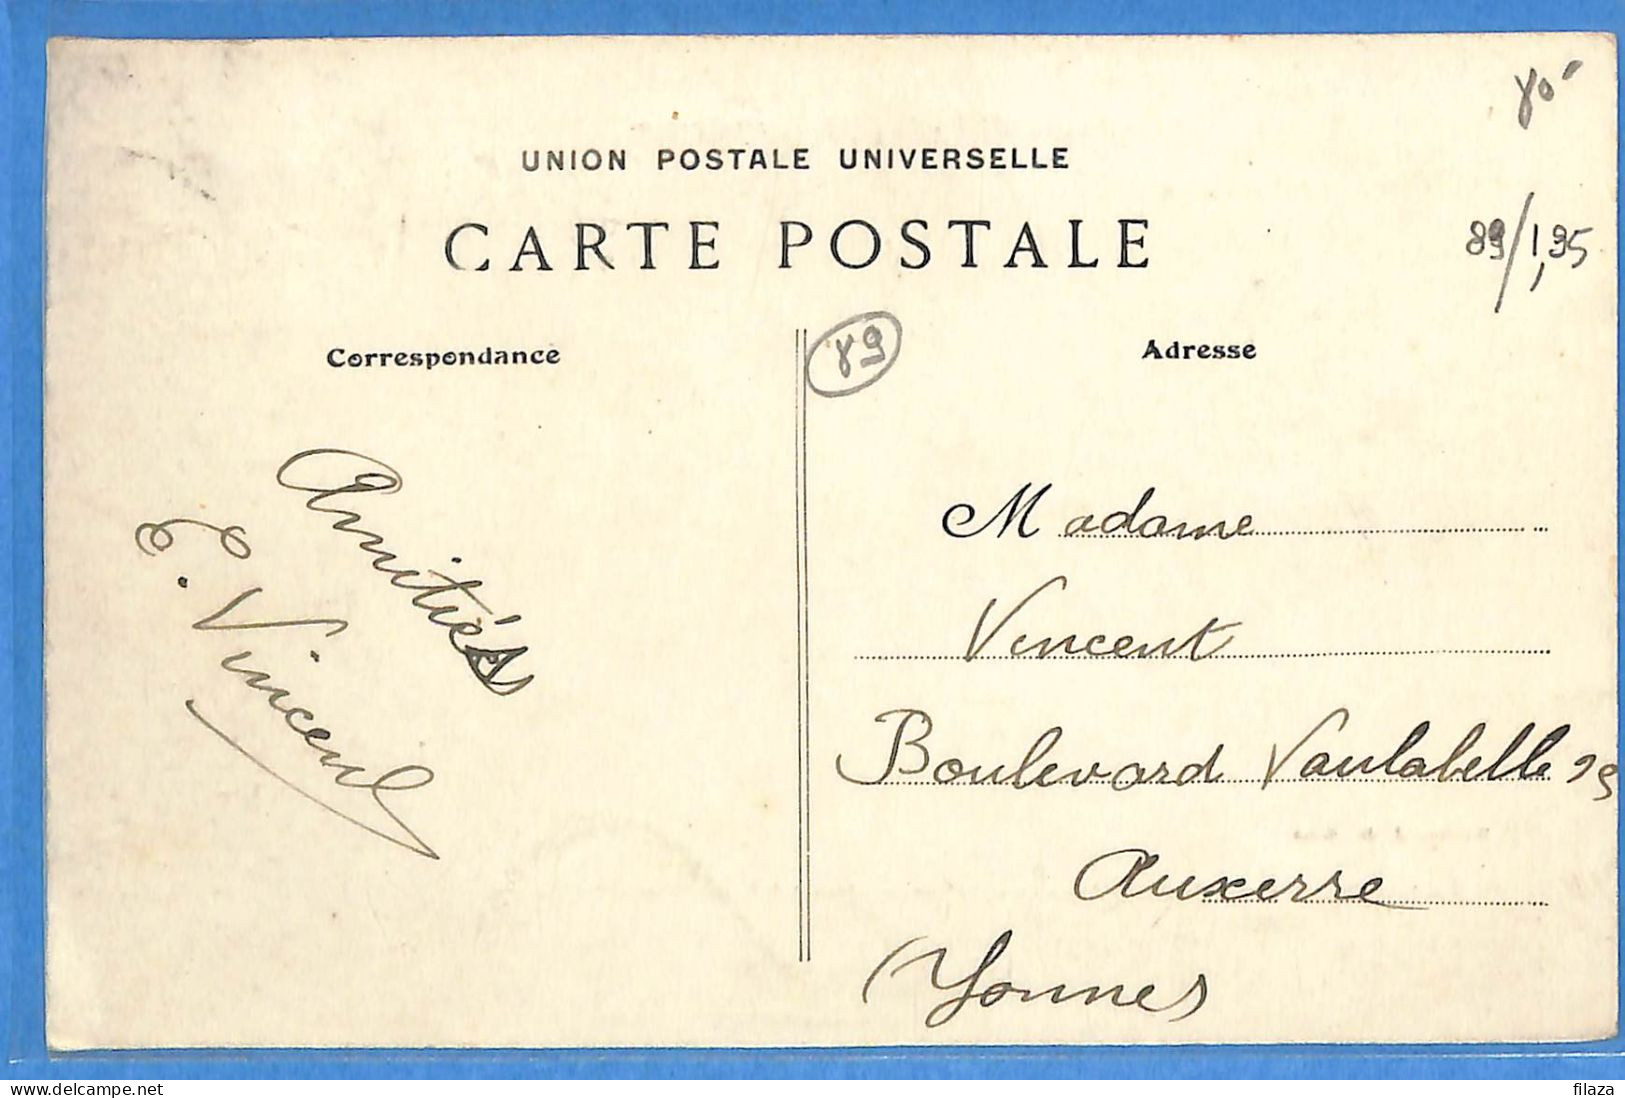 UNION POSTALE UNIVERSELLE
CARTE POSTALE
89/1,95
Correspondance
89
Adresse
Amitiés
E. Vincent
Madame
Vincent
Boulevard Vaulabelle
Auxerre
(Yonne)
www.delcampe.net
filaza